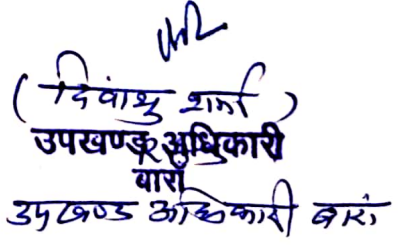 ( दिवांशु शर्मा )
उपखण्ड अधिकारी
बारां
उपखण्ड अधिकारी बारां